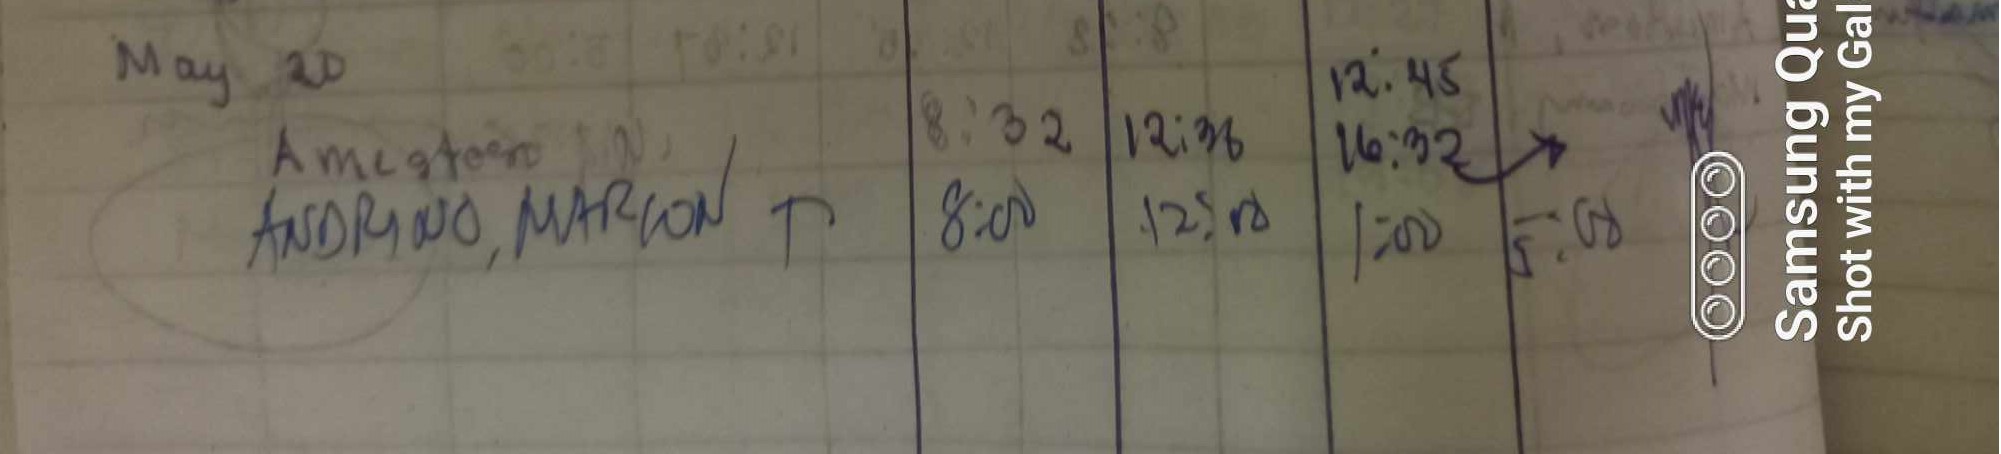 May 20
12:45
8:32 12:36 16:32
ANDRINO, MARLON T 8:00 12:00 1:00 5:00
Samsung Qua
Shot with my Gal